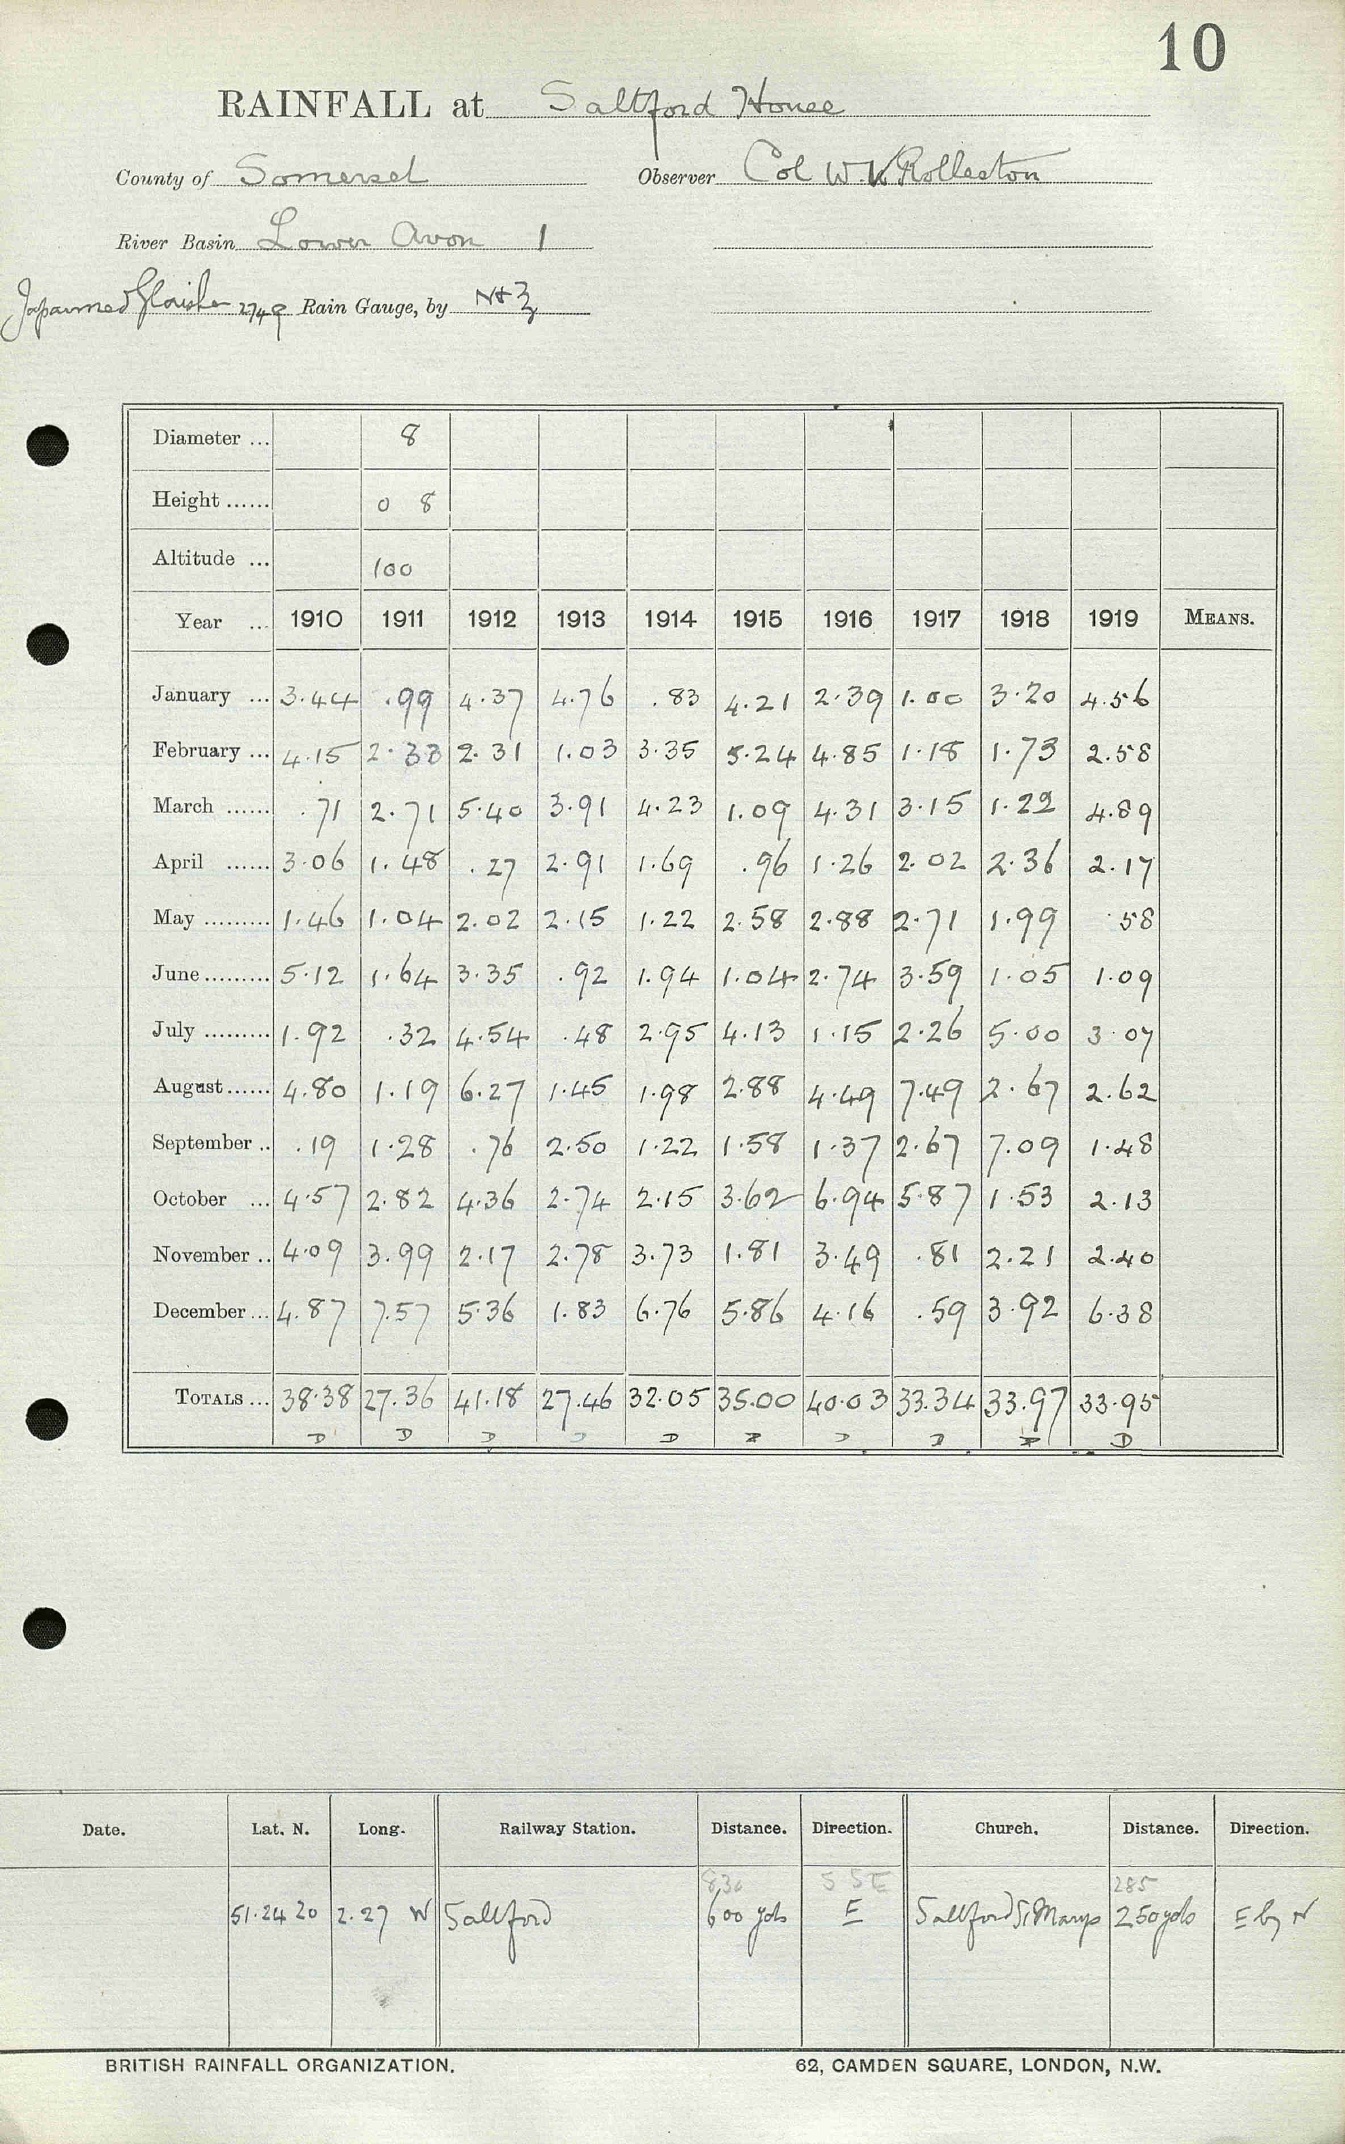 10
RAINFALL at Saltford House
County of Somerset Observer Col W. K Rolleston
River Basin Lower Avon 1
Japanned Glaisher 2749 Rain Gauge, by N + Z
Diameter ... 8
Height ...... 0 8
Altitude ... 100
Year ... 1910 1911 1912 1913 1914 1915 1916 1917 1918 1919 MEANS.
January ... 3.44 .99 4.37 4.76 .83 4.21 2.39 1.00 3.20 4.56
February ... 4.15 2.33 2.31 1.03 3.35 5.24 4.85 1.18 1.73 2.58
March ...... .71 2.71 5.40 3.91 4.23 1.09 4.31 3.15 1.22 4.89
April ...... 3.06 1.48 .27 2.91 1.69 .96 1.26 2.02 2.36 2.17
May ......... 1.46 1.04 2.02 2.15 1.22 2.58 2.88 2.71 1.99 .58
June ......... 5.12 1.64 3.35 .92 1.94 1.04 2.74 3.59 1.05 1.09
July ......... 1.92 .32 4.54 .48 2.95 4.13 1.15 2.26 5.00 3.07
August ...... 4.80 1.19 6.27 1.45 1.98 2.88 4.49 7.49 2.67 2.62
September .. .19 1.28 .76 2.50 1.22 1.58 1.37 2.67 7.09 1.48
October ... 4.57 2.82 4.36 2.74 2.15 3.62 6.94 5.87 1.53 2.13
November .. 4.09 3.99 2.17 2.78 3.73 1.81 3.49 .81 2.21 2.40
December ... 4.87 7.57 5.36 1.83 6.76 5.86 4.16 .59 3.92 6.38
TOTALS ... 38.38 27.36 41.18 27.46 32.05 35.00 40.03 33.34 33.97 33.95
D D D D D D D D D D
Date. Lat. N. Long. Railway Station. Distance. Direction. Church. Distance. Direction.
830 S S E 285
51.24 20 2.27 W Saltford 600 yds E Saltford St Marys 250 yds E by N
BRITISH RAINFALL ORGANIZATION. 62, CAMDEN SQUARE, LONDON, N.W.